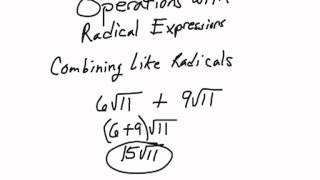 Operations with
Radical Expressions
Combining Like Radicals
6√11 + 9√11
(6+9)√11
15√11